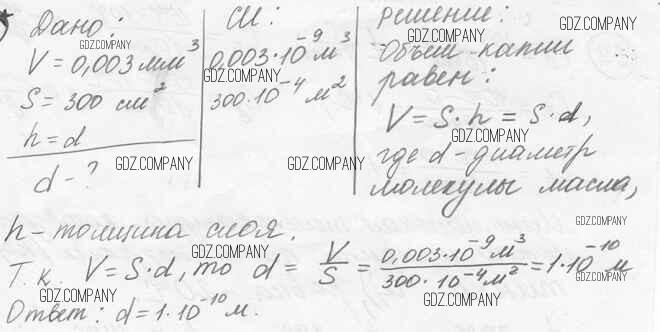 Дано:
V = 0,003 мм³
S = 300 см²
h = d
d - ?
СИ:
0,003·10⁻⁹ м³
300·10⁻⁴ м²
Решение:
Объем капли
равен:
V = S·h = S·d,
где d - диаметр
молекулы масла,
h - толщина слоя.
Т.к. V = S·d, то d = V/S = 0,003·10⁻⁹ м³ / 300·10⁻⁴ м² = 1·10⁻¹⁰ м
Ответ: d = 1·10⁻¹⁰ м.
GDZ.COMPANY
GDZ.COMPANY
GDZ.COMPANY
GDZ.COMPANY
GDZ.COMPANY
GDZ.COMPANY
GDZ.COMPANY
GDZ.COMPANY
GDZ.COMPANY
GDZ.COMPANY
GDZ.COMPANY
GDZ.COMPANY